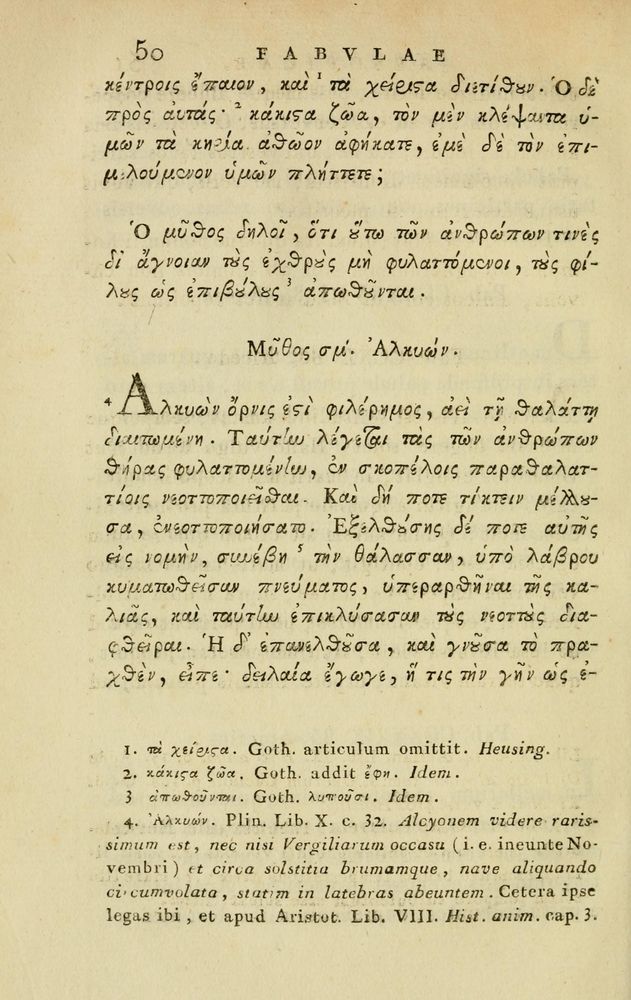 50 FABVLAE
κέντροις ἔπαιον, καὶ ¹ τὰ χείριστα διετίθουν. Ὁ δὲ
πρὸς αὐτάς· ² κάκιστα ζῶα, τὸν μὲν κλέψαντα ὑ-
μῶν τὰ κηρία ἀθῶον ἀφήκατε, ἐμὲ δὲ τὸν ἐπι-
μελούμενον ὑμῶν πλήττετε;
Ὁ μῦθος δηλοῖ, ὅτι οὕτω τῶν ἀνθρώπων τινὲς
δι' ἄγνοιαν τοὺς ἐχθροὺς μὴ φυλαττόμενοι, τοὺς φί-
λους ὡς ἐπιβούλους ³ ἀπωθοῦνται.
Μῦθος σμ'. Ἀλκυών.
⁴ Ἀλκυὼν ὄρνις ἐστὶ φιλέρημος, ἀεὶ τῇ θαλάττῃ
διαιτωμένη. Ταύτην λέγεται τὰς τῶν ἀνθρώπων
θήρας φυλαττομένην, ἐν σκοπέλοις παραθαλατ-
τίοις νεοττοποιεῖσθαι. Καὶ δή ποτε τίκτειν μέλλου-
σα, ἐνεοττοποιήσατο. Ἐξελθούσης δέ ποτε αὐτῆς
εἰς νομὴν, συνέβη ⁵ τὴν θάλασσαν, ὑπὸ λάβρου
κυματωθεῖσαν πνεύματος, ὑπεραρθῆναι τῆς κα-
λιᾶς, καὶ ταύτην ἐπικλύσασαν τοὺς νεοττοὺς δια-
φθεῖραι. Ἡ δ' ἐπανελθοῦσα, καὶ γνοῦσα τὸ πρα-
χθὲν, εἶπε· δειλαία ἔγωγε, ἥ τις τὴν γῆν ὡς ἐ-
1. τὰ χείριστα. Goth. articulum omittit. Heusing.
2. κάκιστα ζῶα. Goth. addit ἔφη. Idem.
3 ἀπωθοῦνται. Goth. λυποῦσι. Idem.
4. Ἀλκυών. Plin. Lib. X. c. 32. Alcyonem videre raris-
simum est, nec nisi Vergiliarum occasu (i. e. ineunte No-
vembri) et circa solstitia brumamque, nave aliquando
circumvolata, statim in latebras abeuntem. Cetera ipse
legas ibi, et apud Aristot. Lib. VIII. Hist. anim. cap. 3.